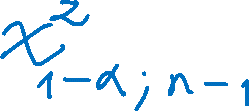 χ²₁₋α;ₙ₋₁